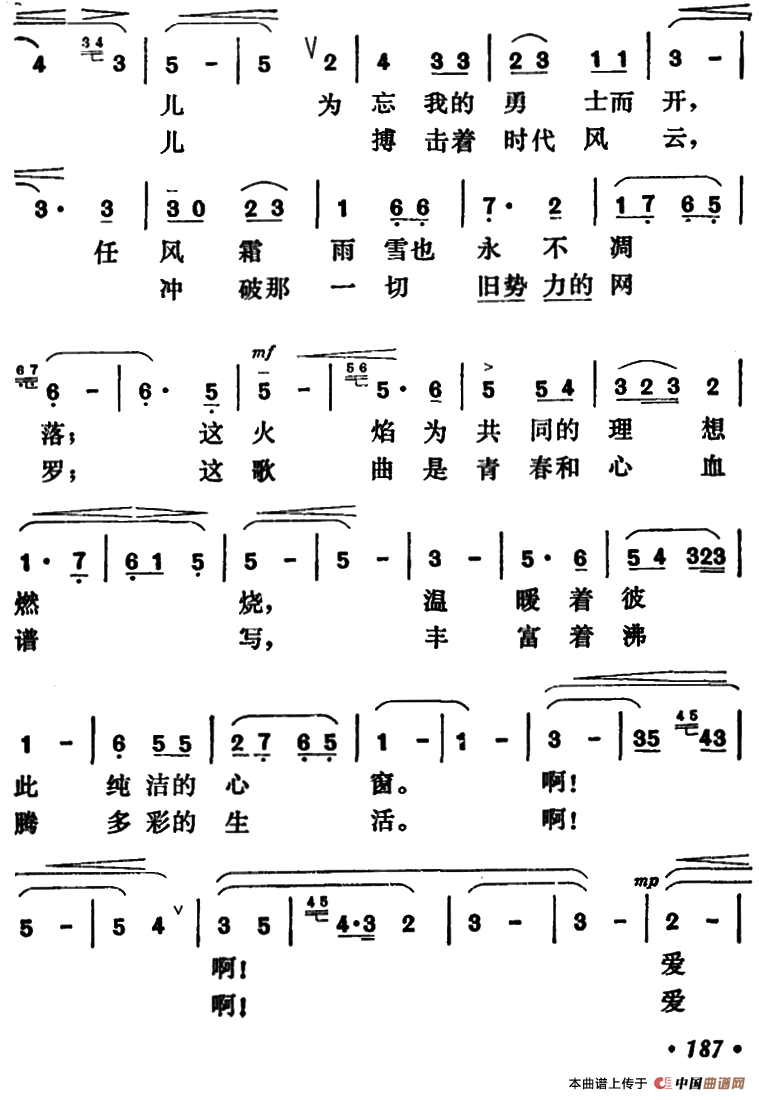 4 3 4 3 | 5 - | 5 V 2 | 4 3 3 | 2 3 1 1 | 3 - |
儿 为 忘 我的 勇 士而 开,
儿 搏 击着 时代 风 云,
3· 3 | 3 0 2 3 | 1 6 6 | 7· 2 | 1 7 6 5 |
任 风 霜 雨 雪也 永 不 凋
冲 破那 一 切 旧势 力的 网
mf
6 7 6 - | 6· 5 | 5 - | 5 6 5· 6 | 5 5 4 | 3 2 3 2 |
落; 这 火 焰 为 共 同的 理 想
罗; 这 歌 曲 是 青 春和 心 血
1· 7 | 6 1 5 | 5 - | 5 - | 3 - | 5· 6 | 5 4 3 2 3 |
燃 烧, 温 暖 着 彼
谱 写, 丰 富 着 沸
1 - | 6 5 5 | 2 7 6 5 | 1 - | 1 - | 3 - | 3 5 4 5 4 3 |
此 纯 洁的 心 窗。 啊!
腾 多 彩的 生 活。 啊!
mp
5 - | 5 4 V | 3 5 | 4 5 4· 3 2 | 3 - | 3 - | 2 - |
啊! 爱
啊! 爱
· 187 ·
本曲谱上传于 中国曲谱网